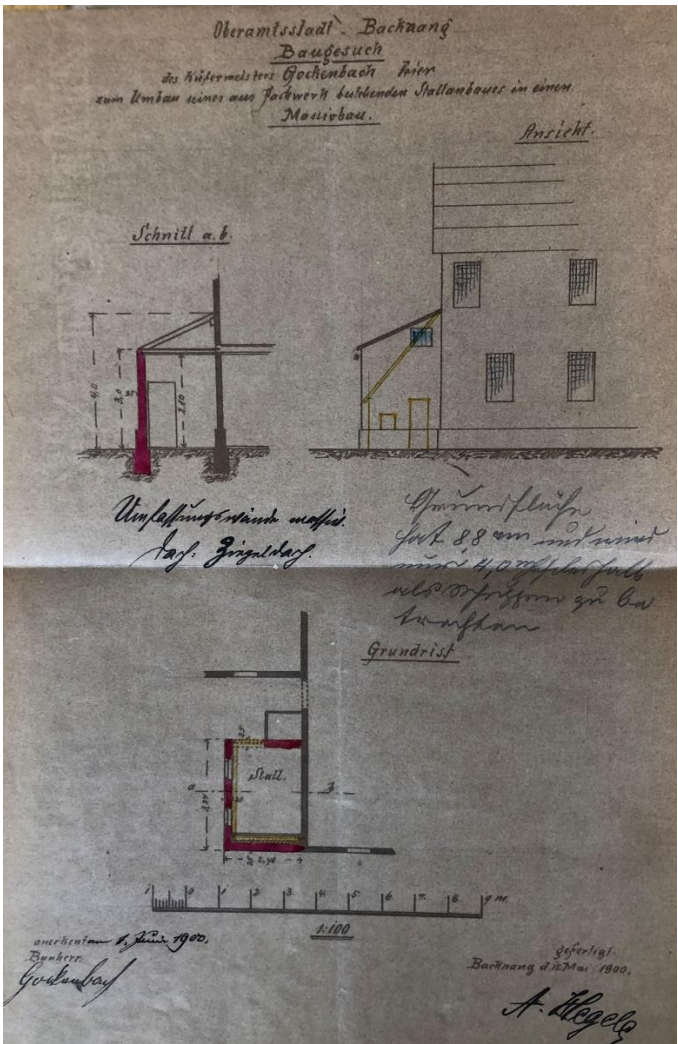 Oberamtsstadt - Backnang
Baugesuch
des Küfermeisters Gockenbach hier
zum Umbau seines aus Fachwerk bestehenden Stallanbaues in einen
Massivbau.
Ansicht.
Schnitt a.b.
4,0
3,0
2,80
Umfassungswände massiv.
Dach: Ziegeldach.
Grundfläche
hat 8,8 qm und wird
als Schuppen zu be
trachten
Grundriss
Stall.
a
b
1 0 1 2 3 4 5 6 7 8 9 m.
1:100
anerkannt am 1. Juni 1900.
Bauherr:
Gockenbach
gefertigt
Backnang d. 15. Mai 1900.
A. Hegele